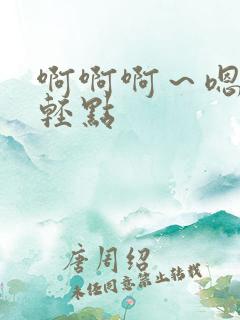 啊啊啊~嗯
輕點
唐周紹
未经同意禁止转载